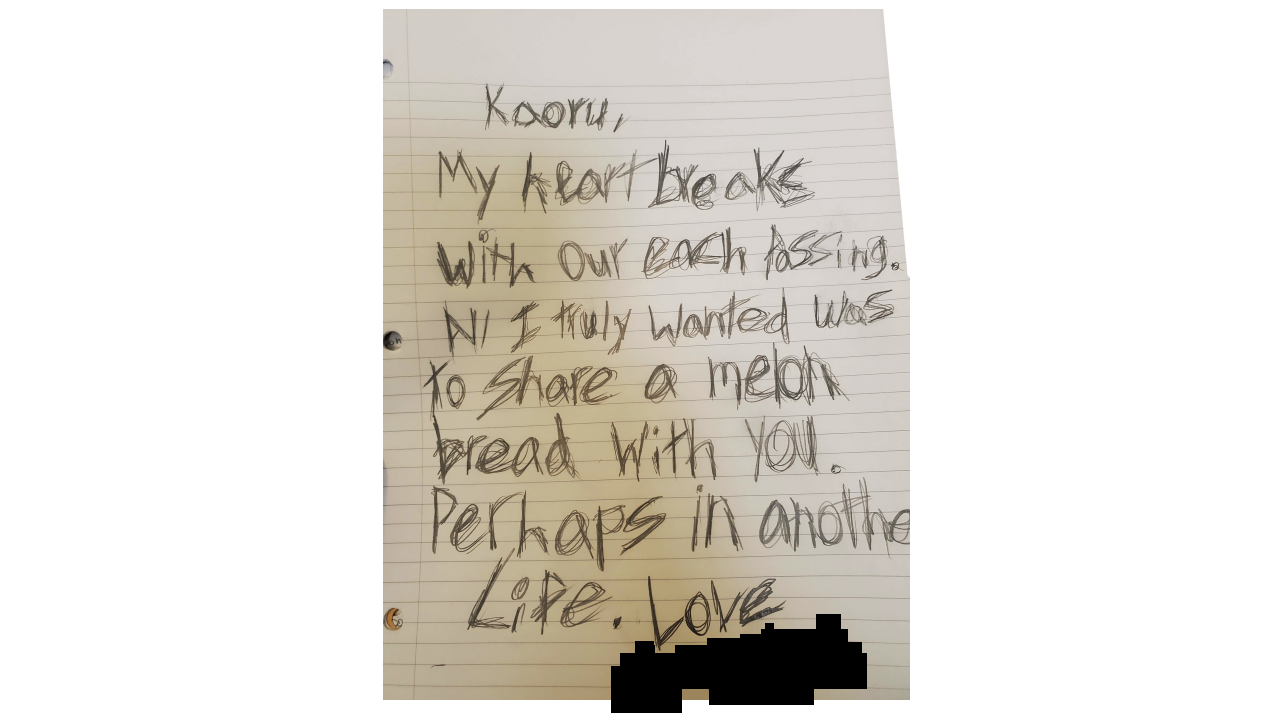 Kaoru,
My heart breaks
with our each passing.
All I truly wanted was
to share a melon
bread with you.
Perhaps in anothe
Life. Love